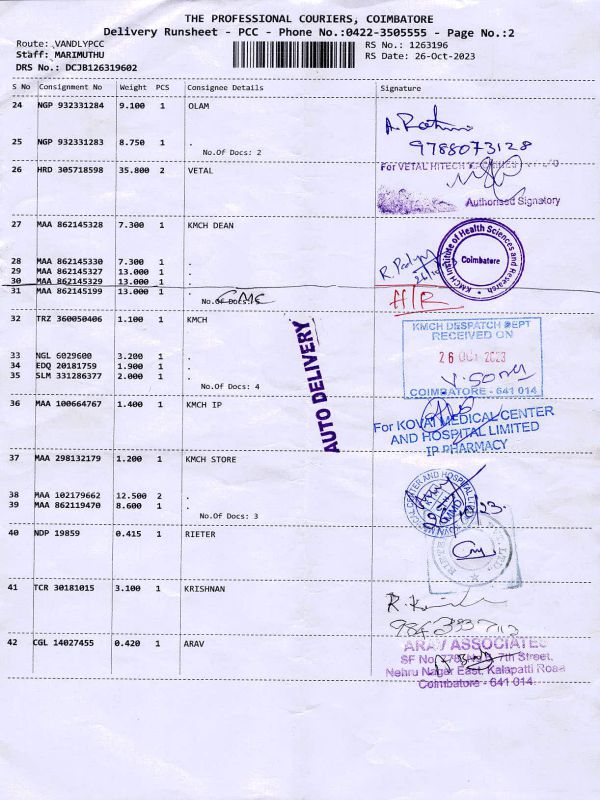 THE PROFESSIONAL COURIERS, COIMBATORE
Delivery Runsheet - PCC - Phone No.:0422-3505555 - Page No.:2
Route: VANDLYPCC
RS No.: 1263196
Staff: MARIMUTHU
RS Date: 26-Oct-2023
DRS No.: DCJB126319602
S No Consignment No Weight PCS Consignee Details Signature
24 NGP 932331284 9.100 1 OLAM
25 NGP 932331283 8.750 1 .
9788073128
No.Of Docs: 2
26 HRD 305718598 35.800 2 VETAL
For VETAL HITECH
Authorised Signatory
27 MAA 862145328 7.300 1 KMCH DEAN
KMCH Institute of Health Sciences and Research
Coimbatore
28 MAA 862145330 7.300 1 .
29 MAA 862145327 13.000 1 .
30 MAA 862145329 13.000 1 .
31 MAA 862145199 13.000 1 .
No.Of Docs:
CMC
32 TRZ 360050406 1.100 1 KMCH
KMCH DESPATCH DEPT
RECEIVED ON
26 Oct 2023
COIMBATORE - 641 014
33 NGL 6029600 3.200 1 .
34 EDQ 20181759 1.900 1 .
35 SLM 331286377 2.000 1 .
No.Of Docs: 4
AUTO DELIVERY
36 MAA 100664767 1.400 1 KMCH IP
For KOVAI MEDICAL CENTER
AND HOSPITAL LIMITED
IP PHARMACY
37 MAA 298132179 1.200 1 KMCH STORE
38 MAA 102179662 12.500 2 .
39 MAA 862119470 8.600 1 .
No.Of Docs: 3
40 NDP 19859 0.415 1 RIETER
41 TCR 30181015 3.100 1 KRISHNAN
42 CGL 14027455 0.420 1 ARAV
ARAV ASSOCIATES
SF No. 7th Street,
Nehru Nager East, Kalapatti Road
Coimbatore - 641 014.